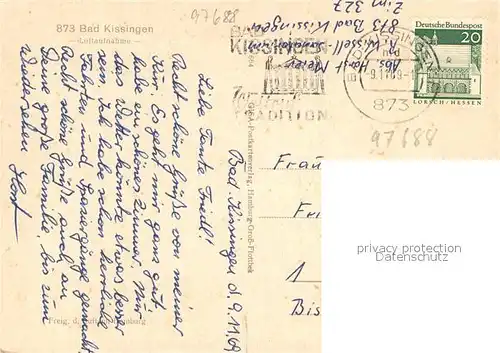 873 Bad Kissingen
-Luftaufnahme-
97688
Bad Kissingen d. 9.11.69
Liebe Tante Friedl!
Recht schöne Grüße von meiner
Kur. Es geht mir ganz gut
habe ein schönes Zimmer. Nur
das Wetter könnte etwas besser
sein. Ich habe schon herrliche
Fahrten und Spaziergänge gemacht.
Recht schöne Grüße auch an
Deine große Familie, bis zum
Wiedersehen
Horst
Cekade-Postkartenverlag, Hamburg-Groß-Flottbek
BAD
KISSINGEN
TRADITION
Abs. Horst Meier
873 Bad Kissingen
Zim 327
BAD KISSINGEN
-9.11.69-
873
Deutsche Bundespost
20
LORSCH/HESSEN
97688
Frau
1
Bis
privacy protection
Datenschutz